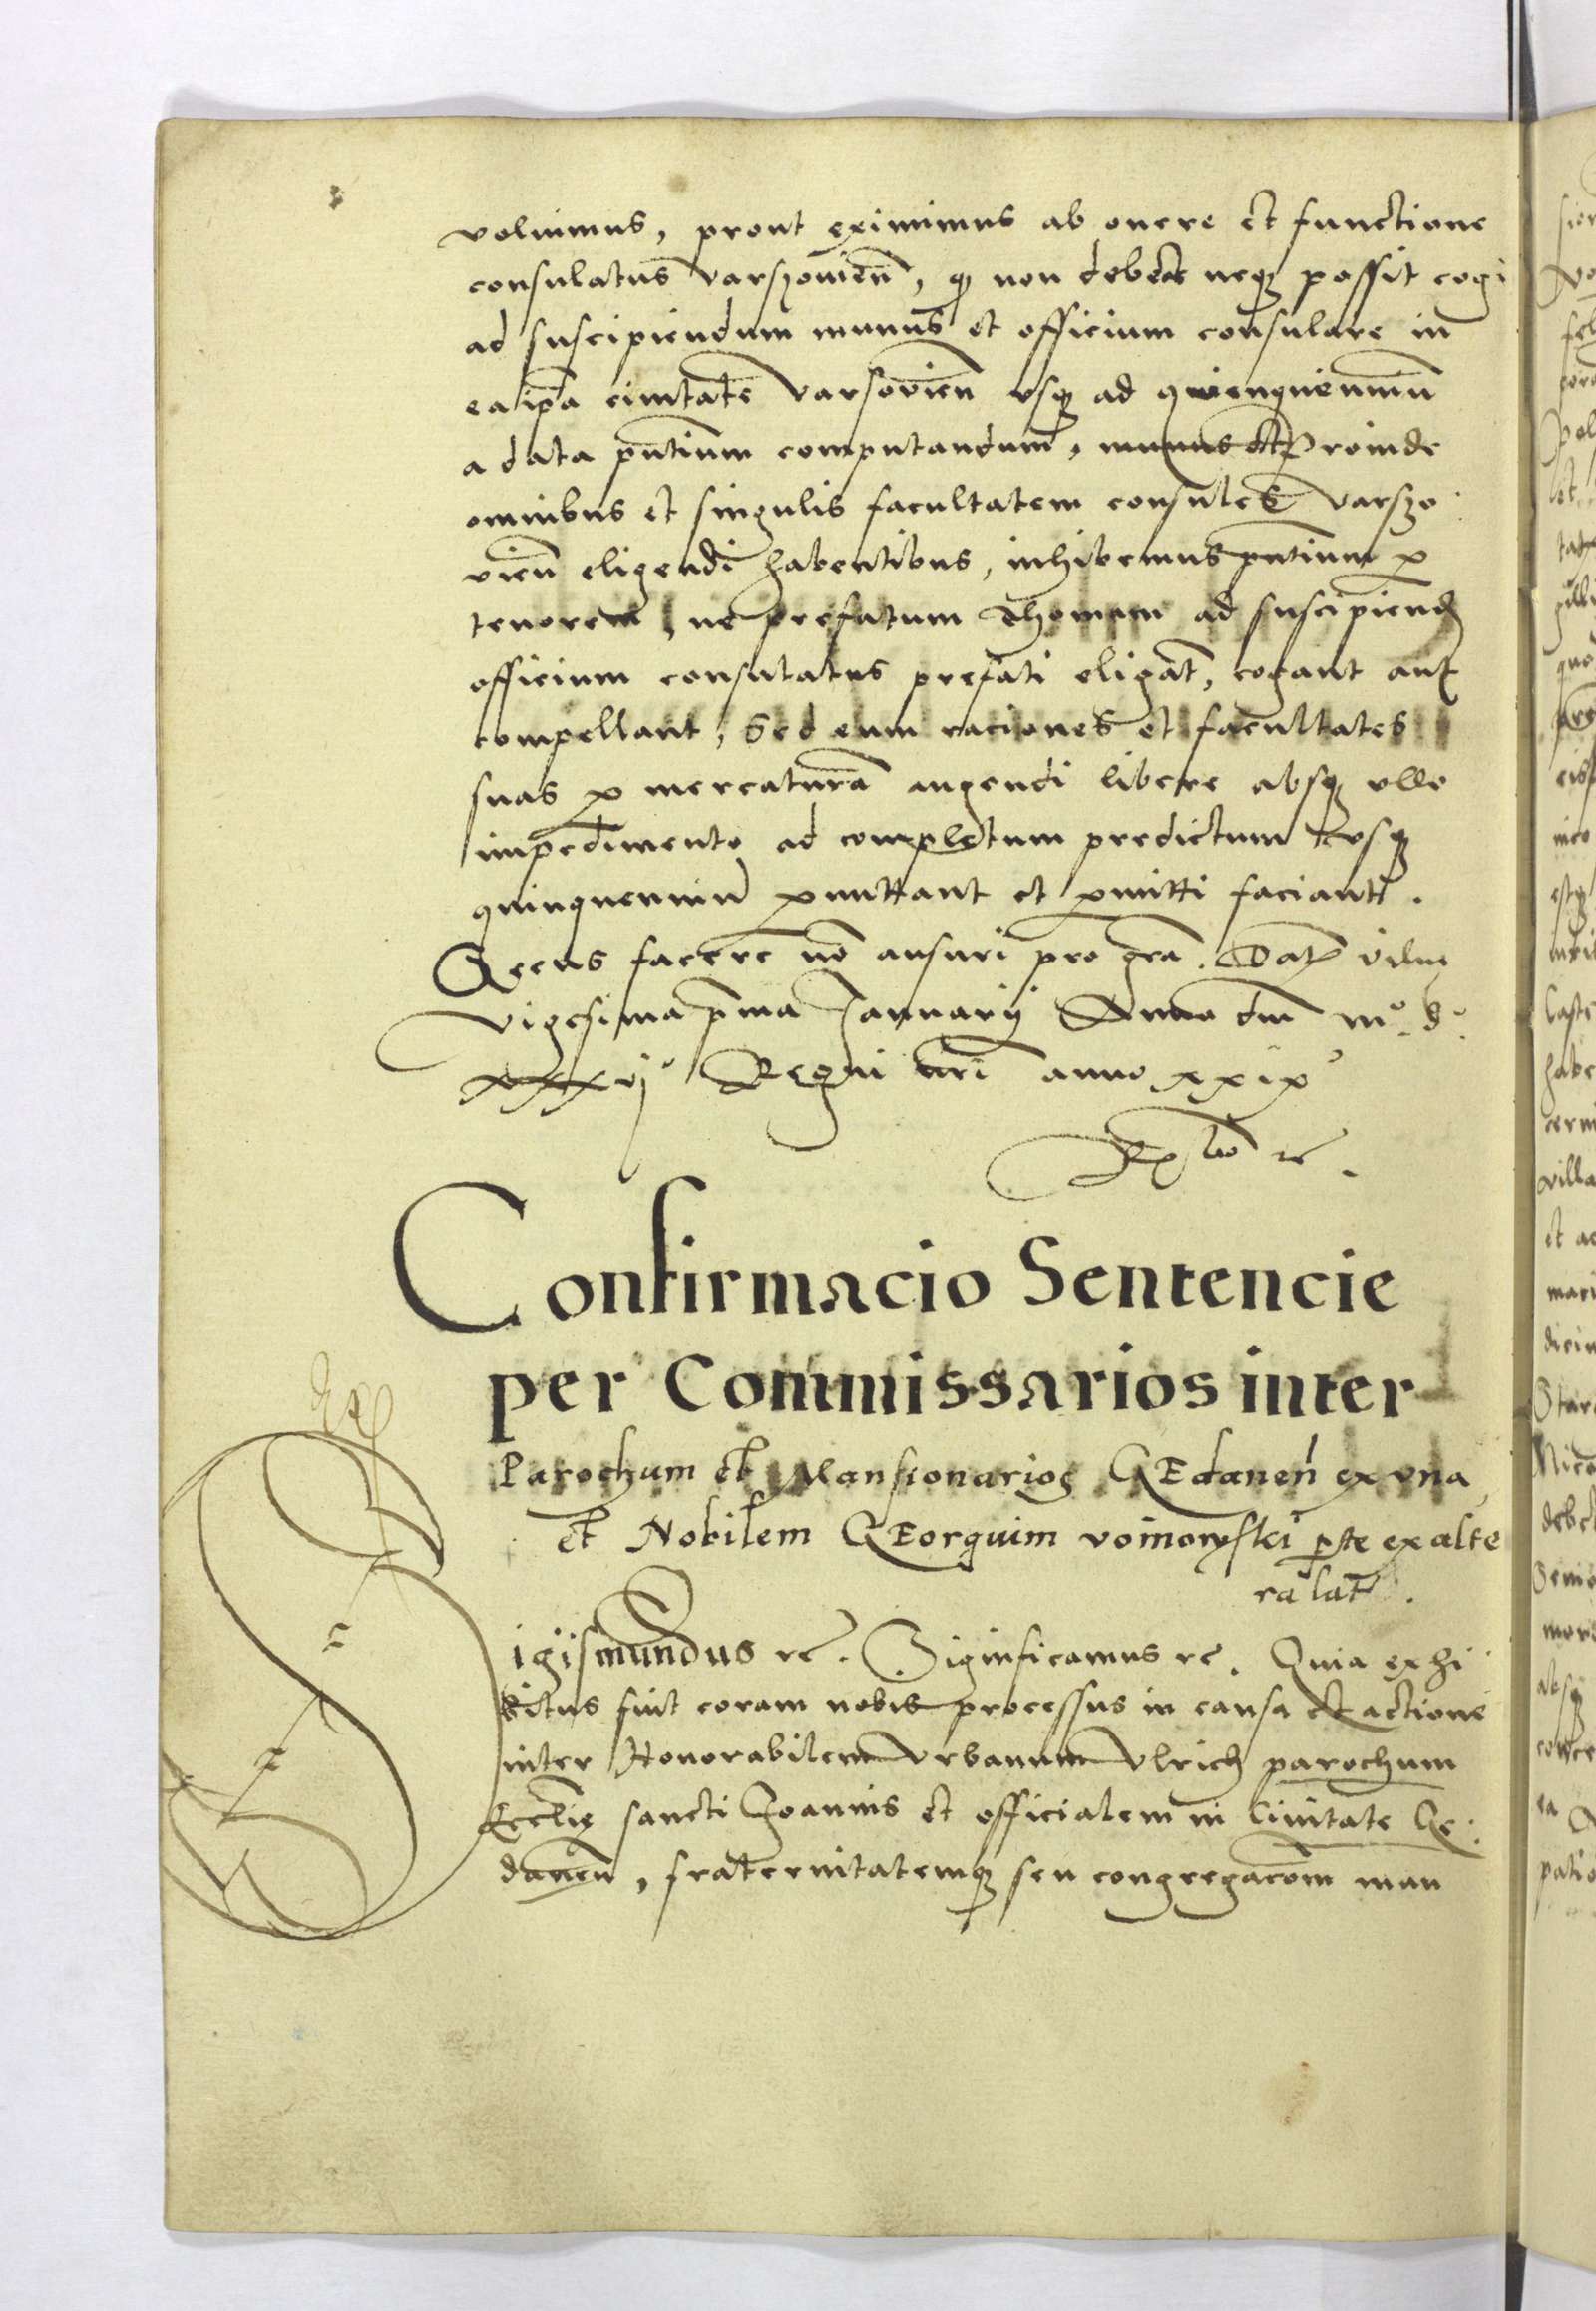 voluimus, prout eximimus ab onere et functione
consulatus varszovien, q non debeat neq possit cogi
ad suscipiendum munus et officium consulare in
ea ipa civitate varsovien vsq ad quinquennium
a data pntium computandum, munus et Proinde
omnibus et singulis facultatem consules varszo
vien eligendi habentibus, inhibemus pntium p
tenorem, ne prefatum Thomam ad suscipiend
officium consulatus prefati eligat, cogant aut
compellant, Sed eum raciones et facultates
suas p mercatura augendi libere absq vllo
impedimento ad completum predictum vsq
quinquennium pmittant et pmitti faciant.
Secus facere no ausuri pro gra. Dat viln
vigesima pma Januarij Anno dni mº. dº.
xxxvjº Regni nri anno xxixº
Confirmacio Sentencie
per Commissarios inter
Parochum et Mansionarios GEdanen ex vna
et Nobilem GEorgium voinowski pte ex alte
ra lat.
Sigismundus rc. Significamus rc. Quia exhi
bitus fuit coram nobis processus in causa et actione
inter Honorabilem Vrbanum Vlrich parochum
Ecclie sancti Joannis et officialem in Civitate Ge
danen, fraternitatemq seu congregacom man